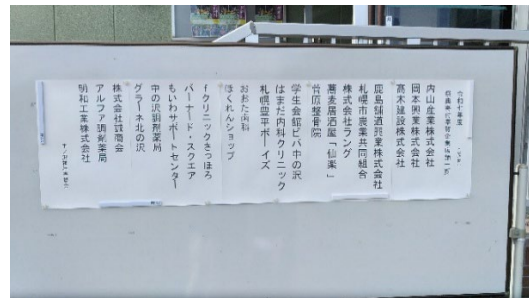 令和七年度
内山産業株式会社
岡本興業株式会社
髙木建設株式会社
鹿島舗道興業株式会社
札幌市農業共同組合
株式会社ラング
蕎麦居酒屋「仙楽」
菅原整骨院
学生会館ビバ中の沢
はまだ内科クリニック
札幌豊平ボーイズ
おおた歯科
ほくれんショップ
fクリニックさっぽろ
バーナード・スクエア
もいわサポートセンター
中の沢調剤薬局
グラーネ北の沢
株式会社誠商会
アルファ調剤薬局
明和工業株式会社